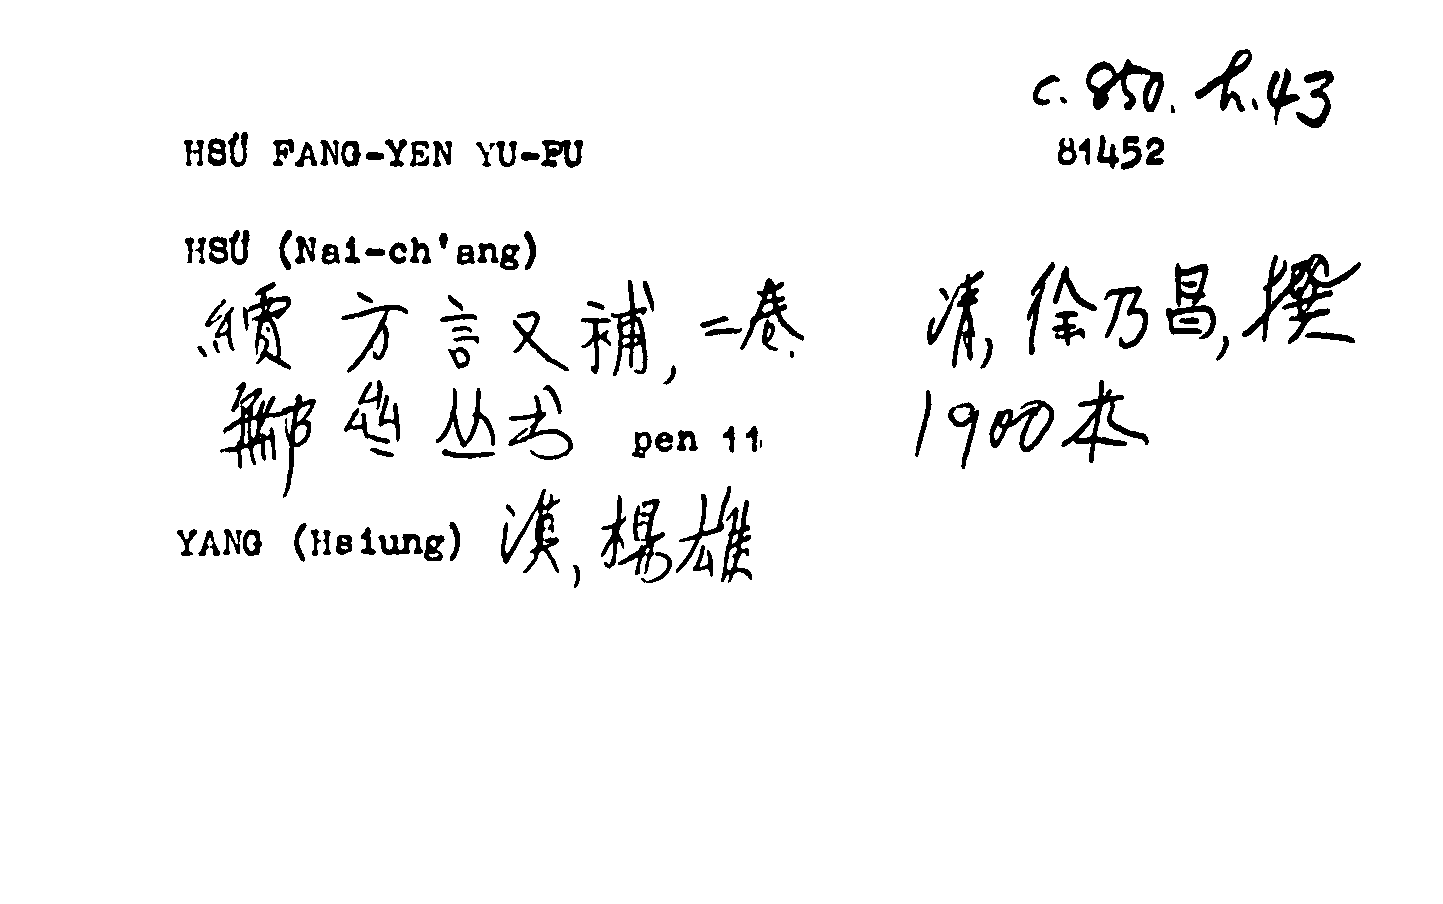 c. 850. h. 43
HSÜ FANG-YEN YU-PU 81452
HSÜ (Nai-ch'ang)
續方言又補, 二卷. 清, 徐乃昌, 撰
鄦斋丛书 pen 11 1900本
YANG (Hsiung) 漢, 楊雄